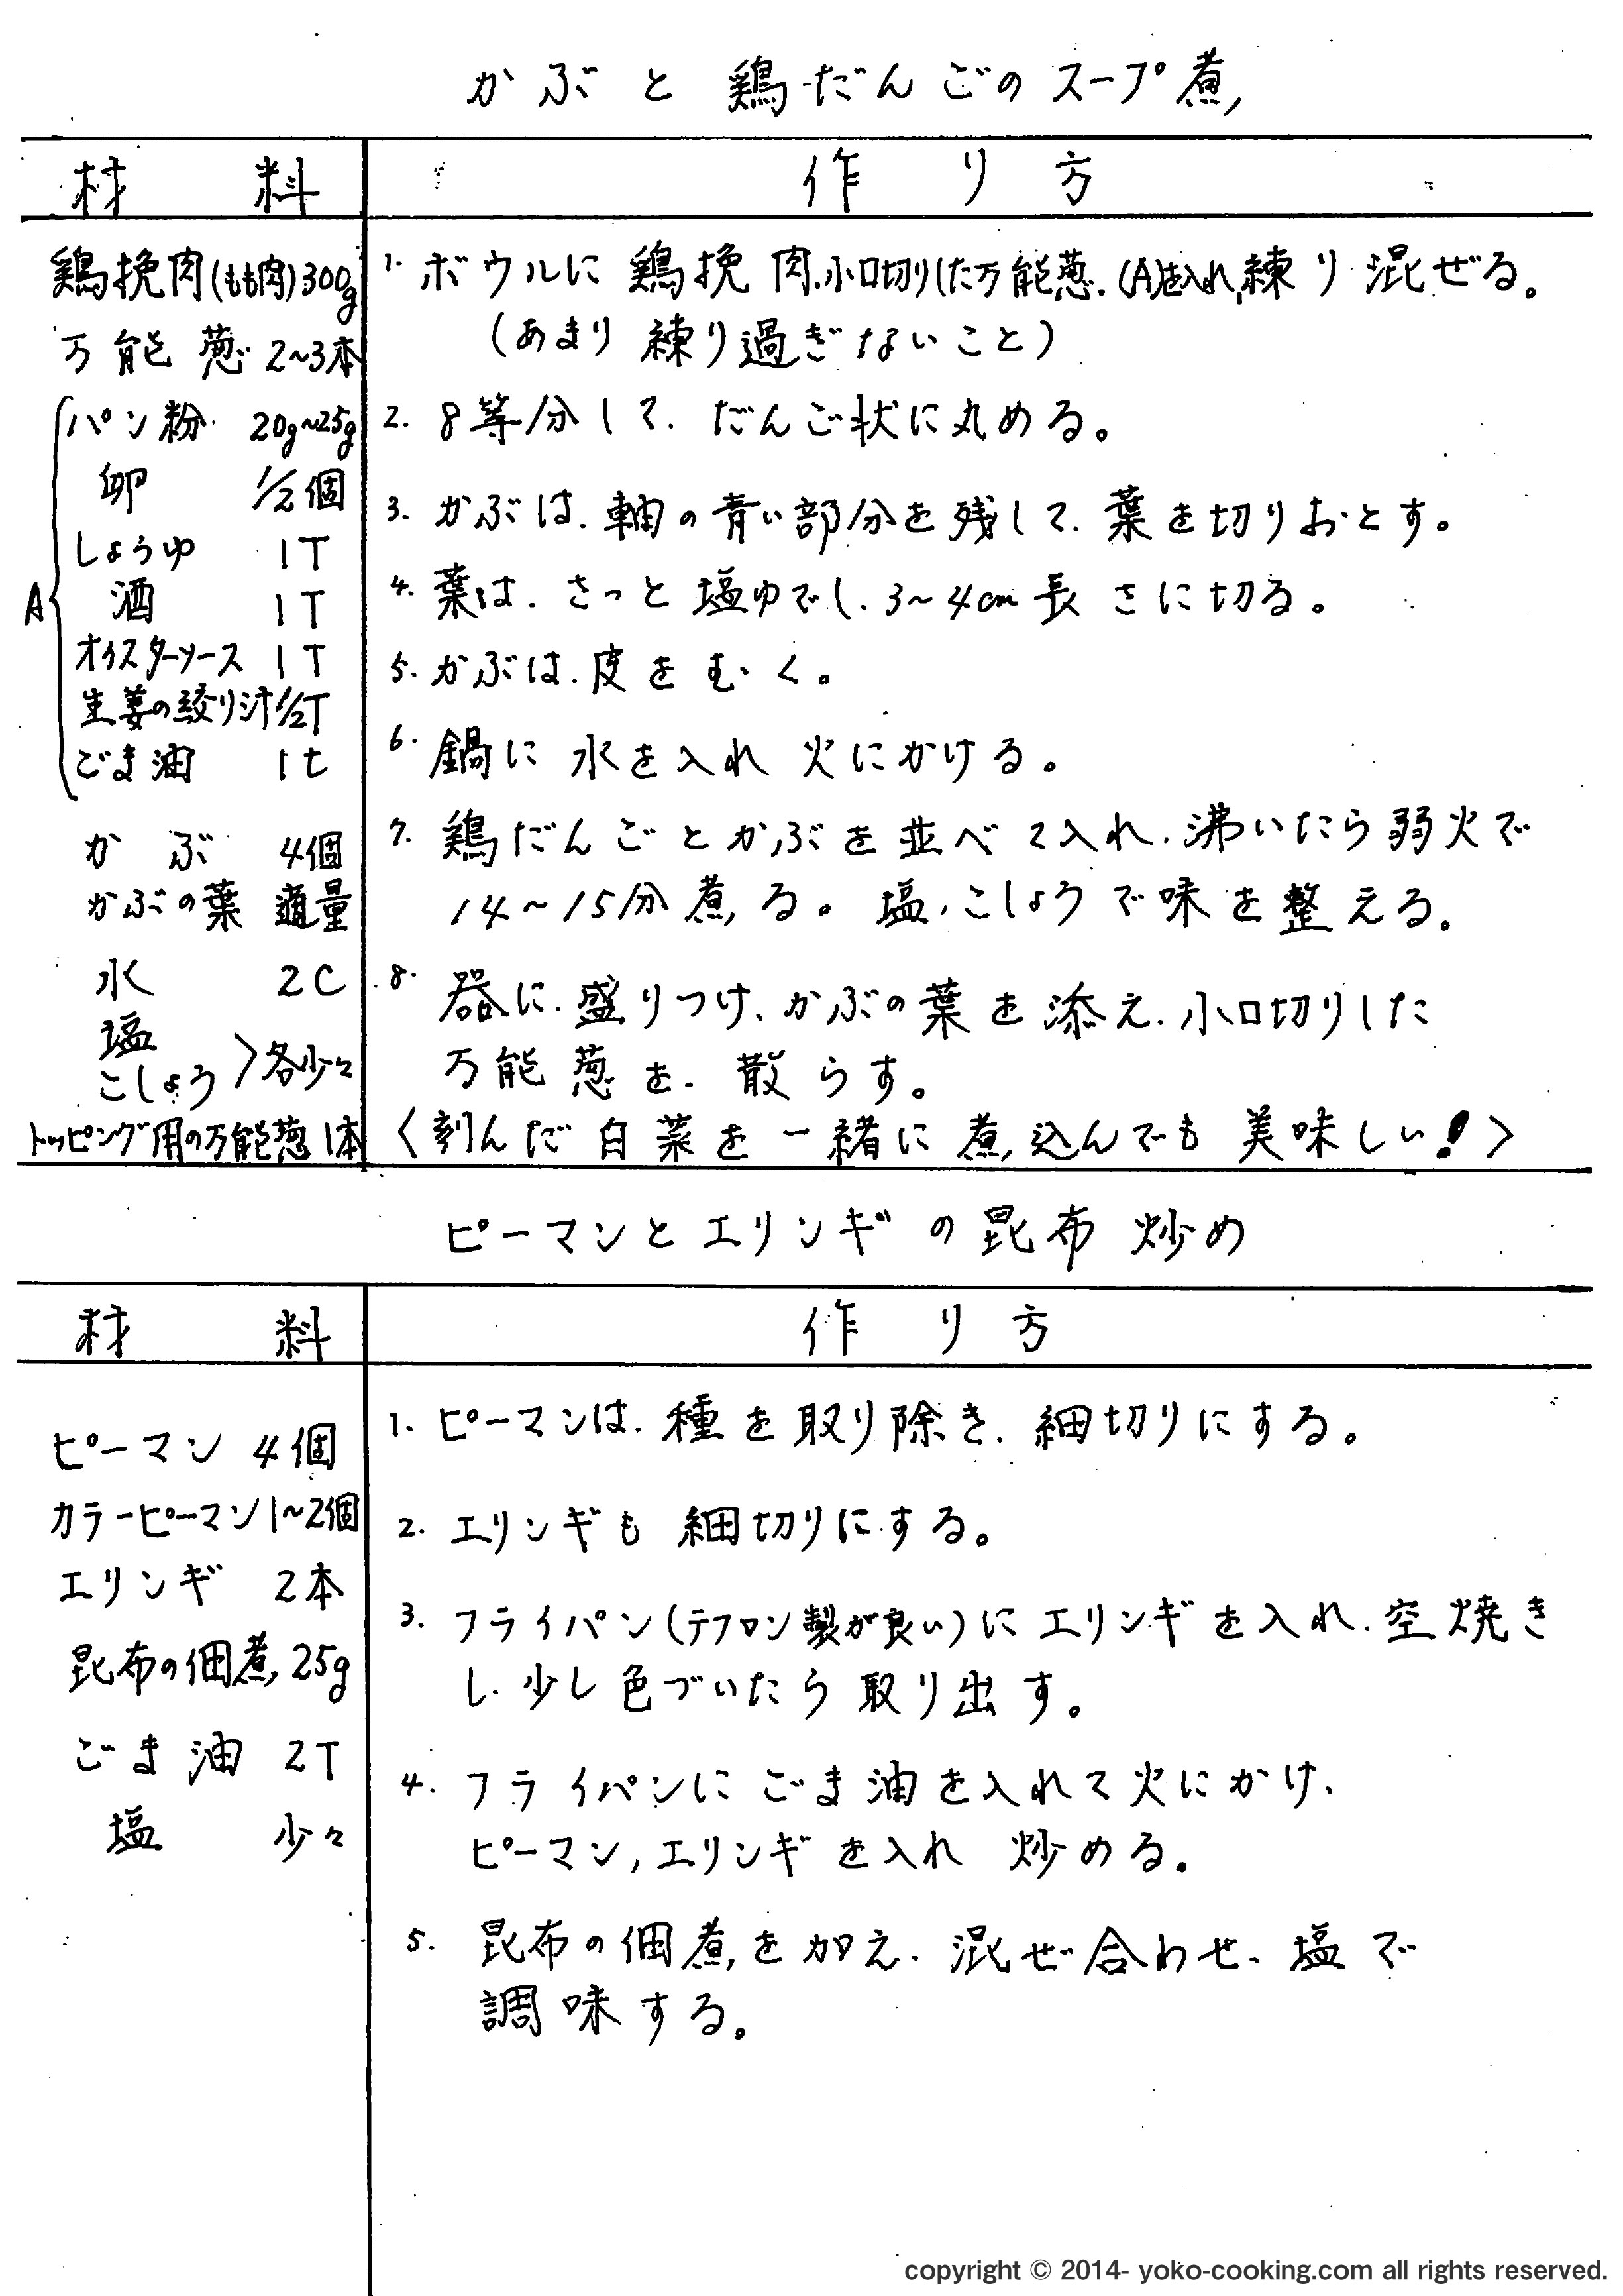 かぶと鶏だんごのスープ煮
材料
作り方
鶏挽肉(もも肉)300g
万能葱 2~3本
A
パン粉 20g~25g
卵 1/2個
しょうゆ 1T
酒 1T
オイスターソース 1T
生姜の絞り汁 1/2T
ごま油 1t
かぶ 4個
かぶの葉 適量
水 2C
塩
こしょう 〉各少々
トッピング用の万能葱 1本
1. ボウルに鶏挽肉、小口切りした万能葱、(A)を入れ、練り混ぜる。
(あまり練り過ぎないこと)
2. 8等分して、だんご状に丸める。
3. かぶは、軸の青い部分を残して、葉を切りおとす。
4. 葉は、さっと塩ゆでし、3~4cm長さに切る。
5. かぶは、皮をむく。
6. 鍋に水を入れ火にかける。
7. 鶏だんごとかぶを並べて入れ、沸いたら弱火で
14~15分煮る。塩、こしょうで味を整える。
8. 器に、盛りつけ、かぶの葉を添え、小口切りした
万能葱を、散らす。
〈刻んだ白菜を一緒に煮込んでも美味しい!〉
ピーマンとエリンギの昆布炒め
材料
作り方
ピーマン 4個
カラーピーマン 1~2個
エリンギ 2本
昆布の佃煮 25g
ごま油 2T
塩 少々
1. ピーマンは、種を取り除き、細切りにする。
2. エリンギも細切りにする。
3. フライパン(テフロン製が良い)にエリンギを入れ、空焼き
し、少し色づいたら取り出す。
4. フライパンにごま油を入れて火にかけ、
ピーマン,エリンギを入れ炒める。
5. 昆布の佃煮を加え、混ぜ合わせ、塩で
調味する。
copyright © 2014- yoko-cooking.com all rights reserved.